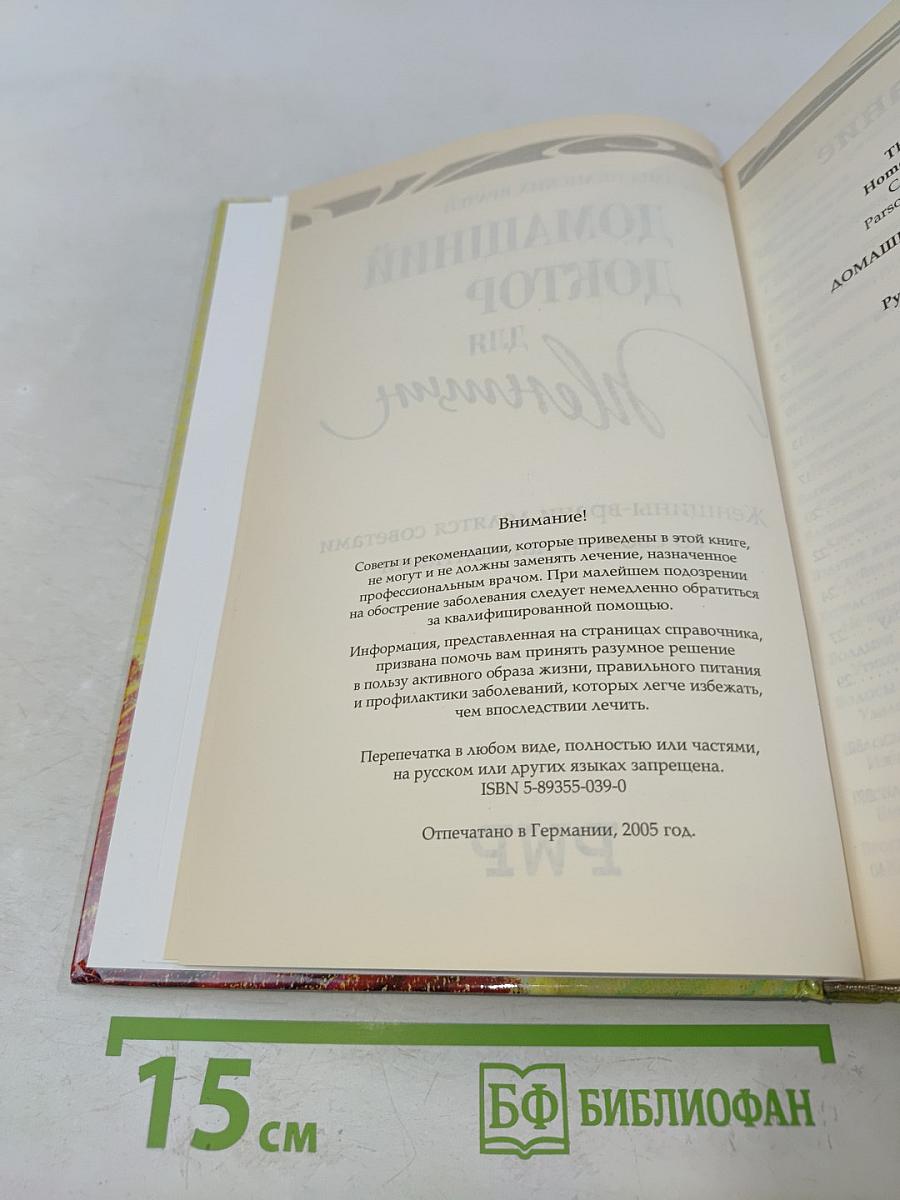 Внимание!
Советы и рекомендации, которые приведены в этой книге,
не могут и не должны заменять лечение, назначенное
профессиональным врачом. При малейшем подозрении
на обострение заболевания следует немедленно обратиться
за квалифицированной помощью.
Информация, представленная на страницах справочника,
призвана помочь вам принять разумное решение
в пользу активного образа жизни, правильного питания
и профилактики заболеваний, которых легче избежать,
чем впоследствии лечить.
Перепечатка в любом виде, полностью или частями,
на русском или других языках запрещена.
ISBN 5-89355-039-0
Отпечатано в Германии, 2005 год.
ДОМАШНИЙ
ДОКТОР
ДЛЯ
Женщин
15 см
БФ БИБЛИОФАН